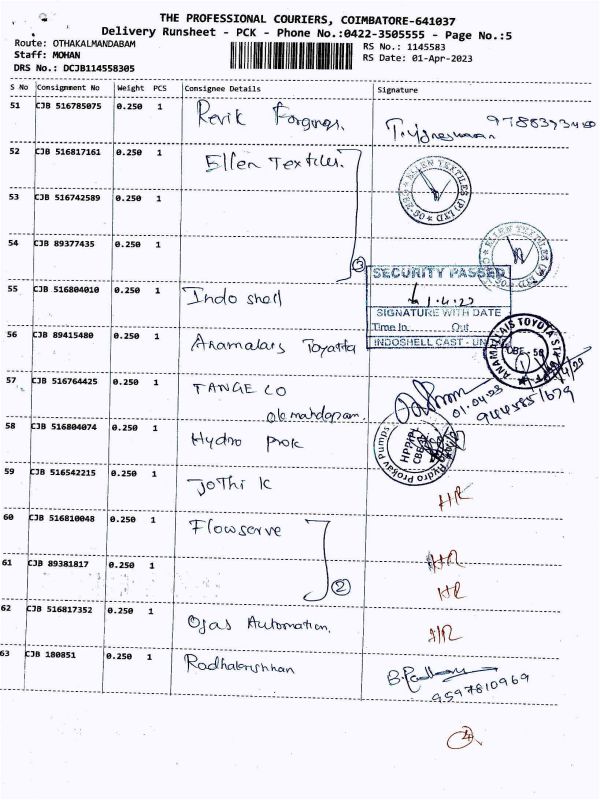 THE PROFESSIONAL COURIERS, COIMBATORE-641037
Delivery Runsheet - PCK - Phone No.:0422-3505555 - Page No.:5
Route: OTHAKALMANDABAM
RS No.: 1145583
Staff: MOHAN
RS Date: 01-Apr-2023
DRS No.: DCJB114558305
S No Consignment No Weight PCS Consignee Details Signature
51 CJB 516785075 0.250 1
52 CJB 516817161 0.250 1 Ellen Textiles.
ELLEN TEXTILES (P) LTD
53 CJB 516742589 0.250 1
54 CJB 89377435 0.250 1
③
ELLEN TEXTILES (P) LTD
SECURITY PASSED
55 CJB 516804010 0.250 1 Indo shell
1.4.23
SIGNATURE WITH DATE
Time In Out
INDOSHELL CAST - UNIT
56 CJB 89415480 0.250 1 Anamalais Toyatta
ANAMALLAIS TOYOTA
57 CJB 516764425 0.250 1 TANGEDCO
01.04.23
58 CJB 516804074 0.250 1 Hydro Prok
Hydro Prokav Pumps
59 CJB 516542215 0.250 1 Jothi K
HR
60 CJB 516810048 0.250 1 Flowserve
61 CJB 89381817 0.250 1 HR
②
HR
62 CJB 516817352 0.250 1 Ojas Automation.
HR
63 CJB 180851 0.250 1 Radhakrishnan
9597810969